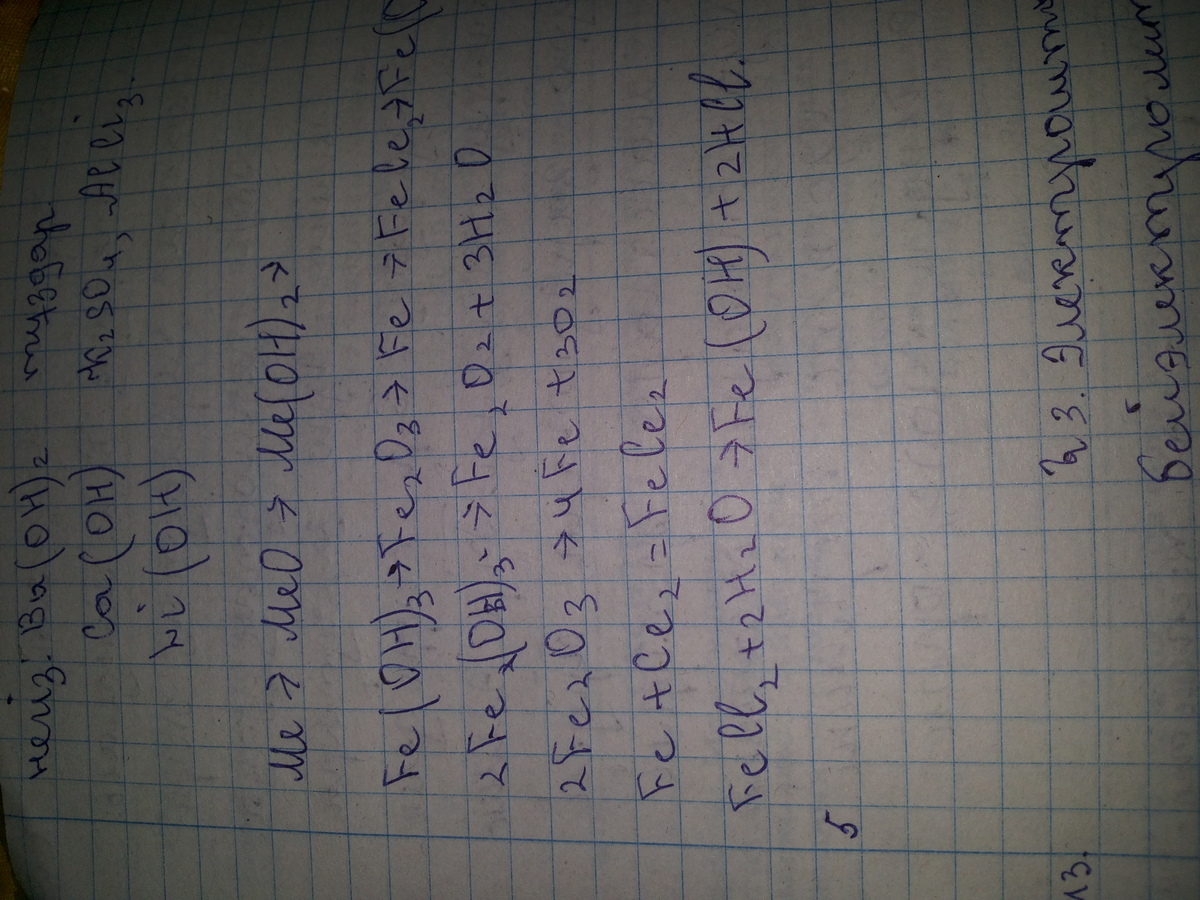 негіз: Ba(OH)2 тұздар
Ca(OH) K2SO4, AlCl3.
Ni(OH)
Me → MeO → Me(OH)2 →
Fe(OH)3 → Fe2O3 → Fe → FeCl2 → Fe(O
2Fe2(OH)3 → Fe2O2 + 3H2O
2Fe2O3 → 4Fe + 3O2
Fe + Cl2 = FeCl2
FeCl2 + 2H2O → Fe(OH) + 2HCl.
5
13.
ч 3. Электролит
бейэлектролит